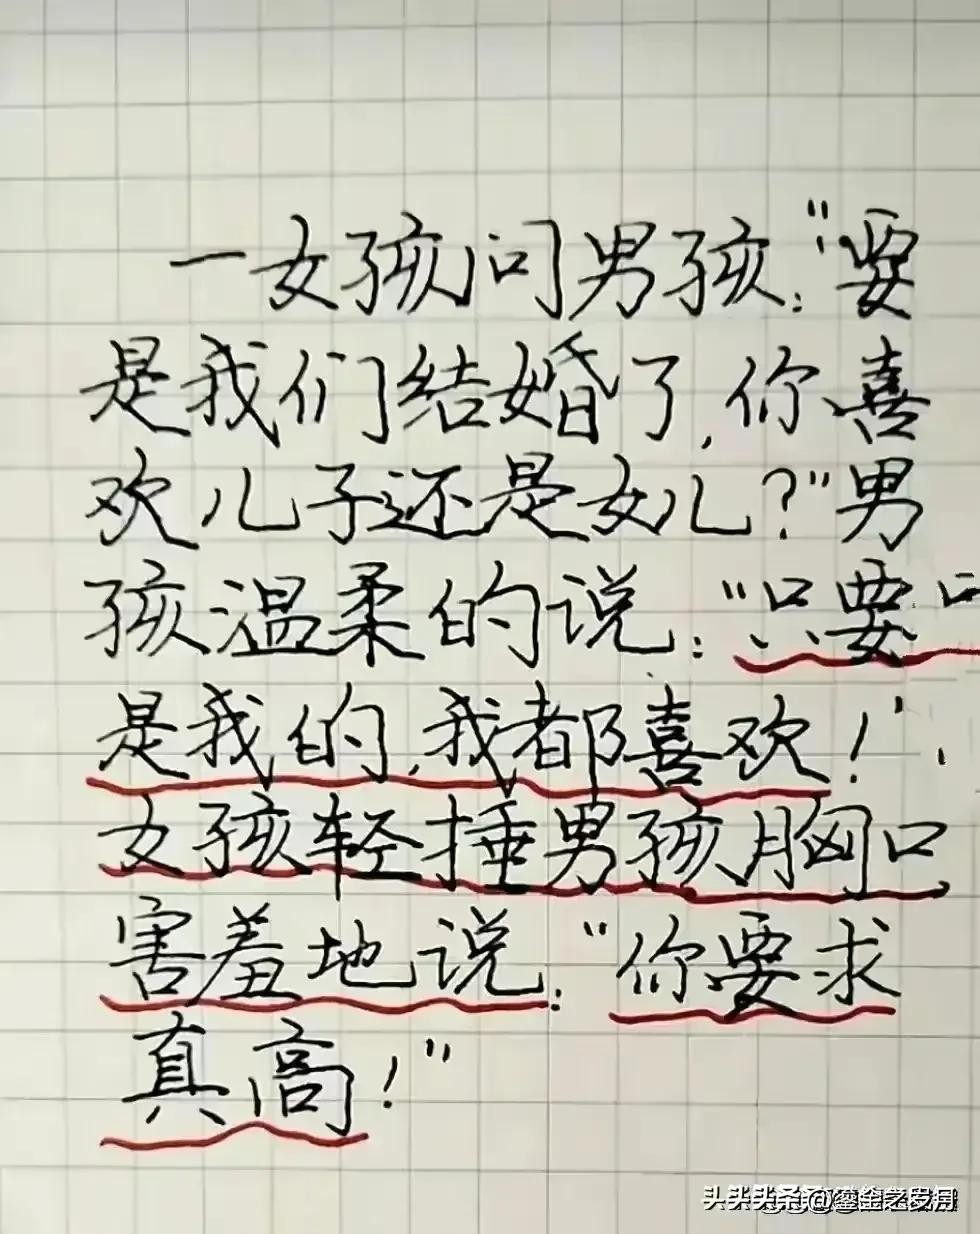 一女孩问男孩:“要
是我们结婚了,你喜
欢儿子还是女儿?”男
孩温柔的说:“只要
是我的,我都喜欢!”
女孩轻捶男孩胸口
害羞地说:“你要求
真高!”
头条